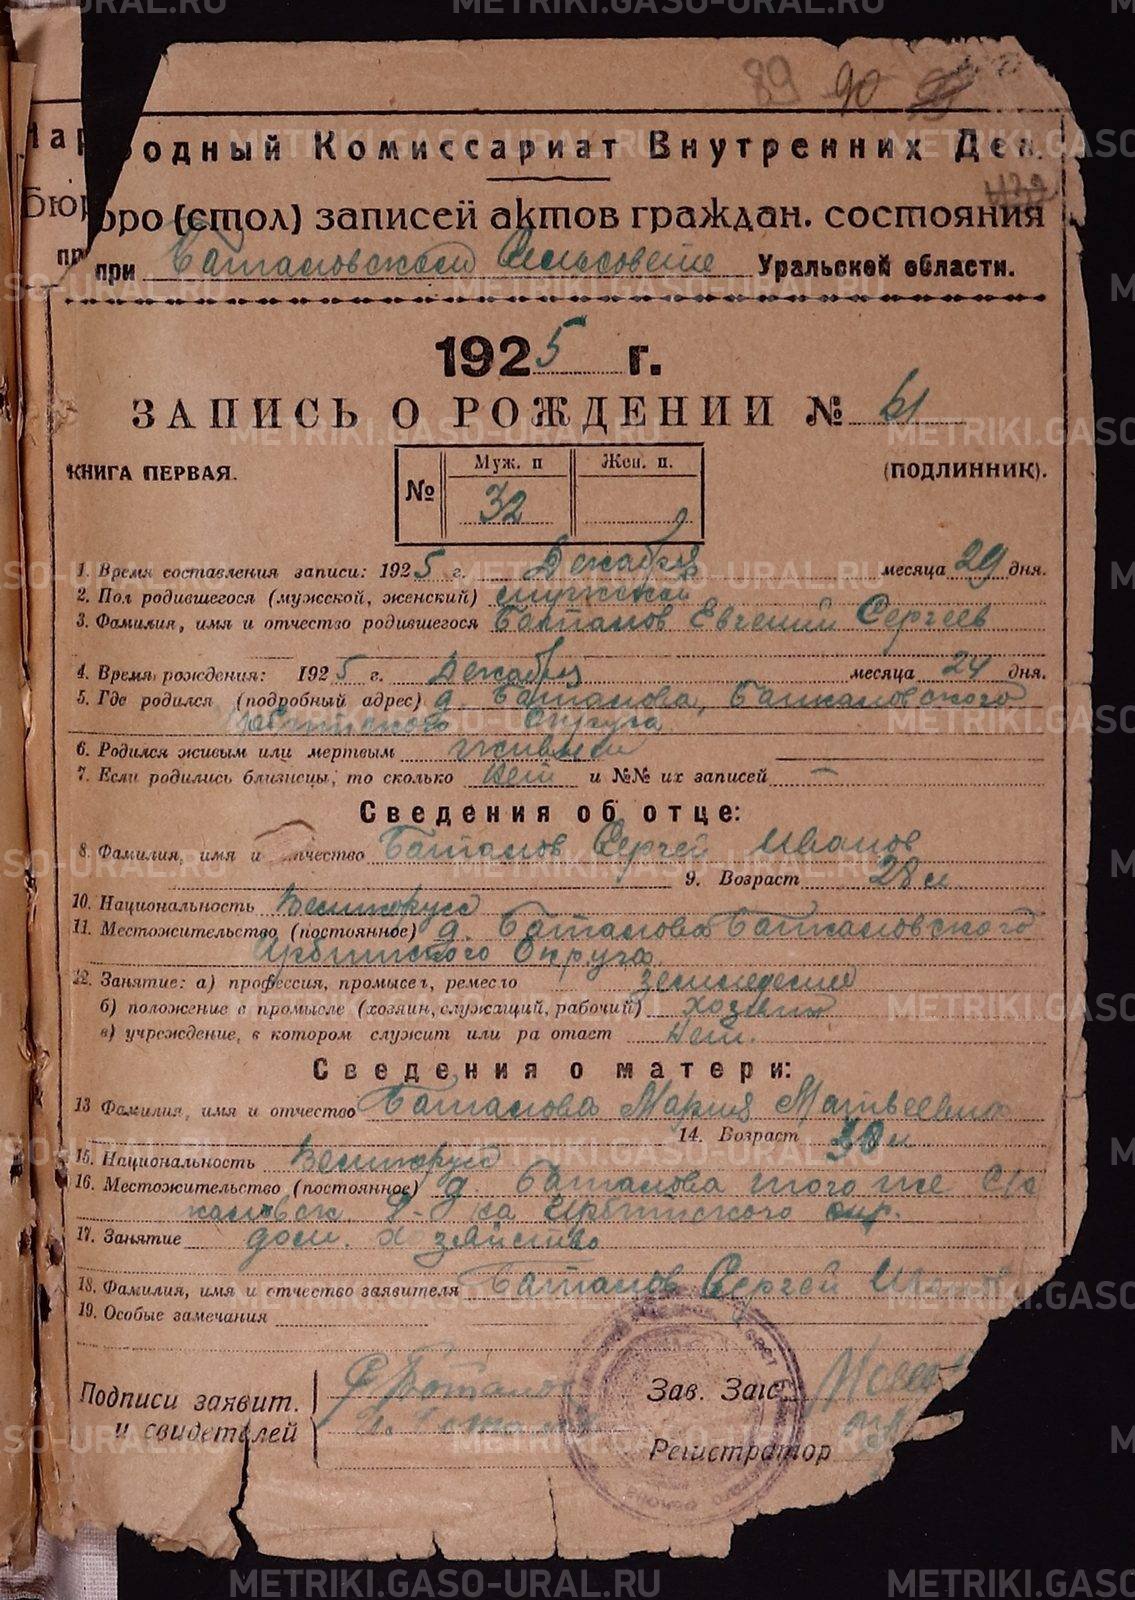 89 90
Народный Комиссариат Внутренних Дел.
439
Бюро (стол) записей актов граждан. состояния
при Баталовском Сельсовете Уральской области.
1925 г.
ЗАПИСЬ О РОЖДЕНИИ № 61
КНИГА ПЕРВАЯ.
№ Муж. п Жен. п.
32
(ПОДЛИННИК).
1. Время составления записи: 1925 г. Декабря месяца 29 дня.
2. Пол родившегося (мужской, женский) мужской
3. Фамилия, имя и отчество родившегося Баталов Евгений Сергеев
4. Время рождения: 1925 г. Декабря месяца 24 дня.
5. Где родился (подробный адрес) д. Баталова, Байкаловского
Округа
6. Родился живым или мертвым живым
7. Если родились близнецы, то сколько нет и №№ их записей —
Сведения об отце:
8. Фамилия, имя и отчество Баталов Сергей Иванов
9. Возраст 28 л
10. Национальность Великорусс
11. Местожительство (постоянное) д. Баталова Байкаловского
Ирбитского Округа.
12. Занятие: а) профессия, промысел, ремесло земледелие
б) положение в промысле (хозяин, служащий, рабочий) хозяин
в) учреждение, в котором служит или ра отает Нет.
Сведения о матери:
13 Фамилия, имя и отчество Баталова Мария Матвеевна
14. Возраст 30 л
15. Национальность Великорусс
16. Местожительство (постоянное) д. Баталова того же С/с
Ирбитского окр.
17. Занятие дом. хозяйство
18. Фамилия, имя и отчество заявителя Баталов Сергей Иванов
19. Особые замечания
Подписи заявит.
и свидетелей
С Баталов
Зав. Загс
Регистратор
METRIKI.GASO-URAL.RU